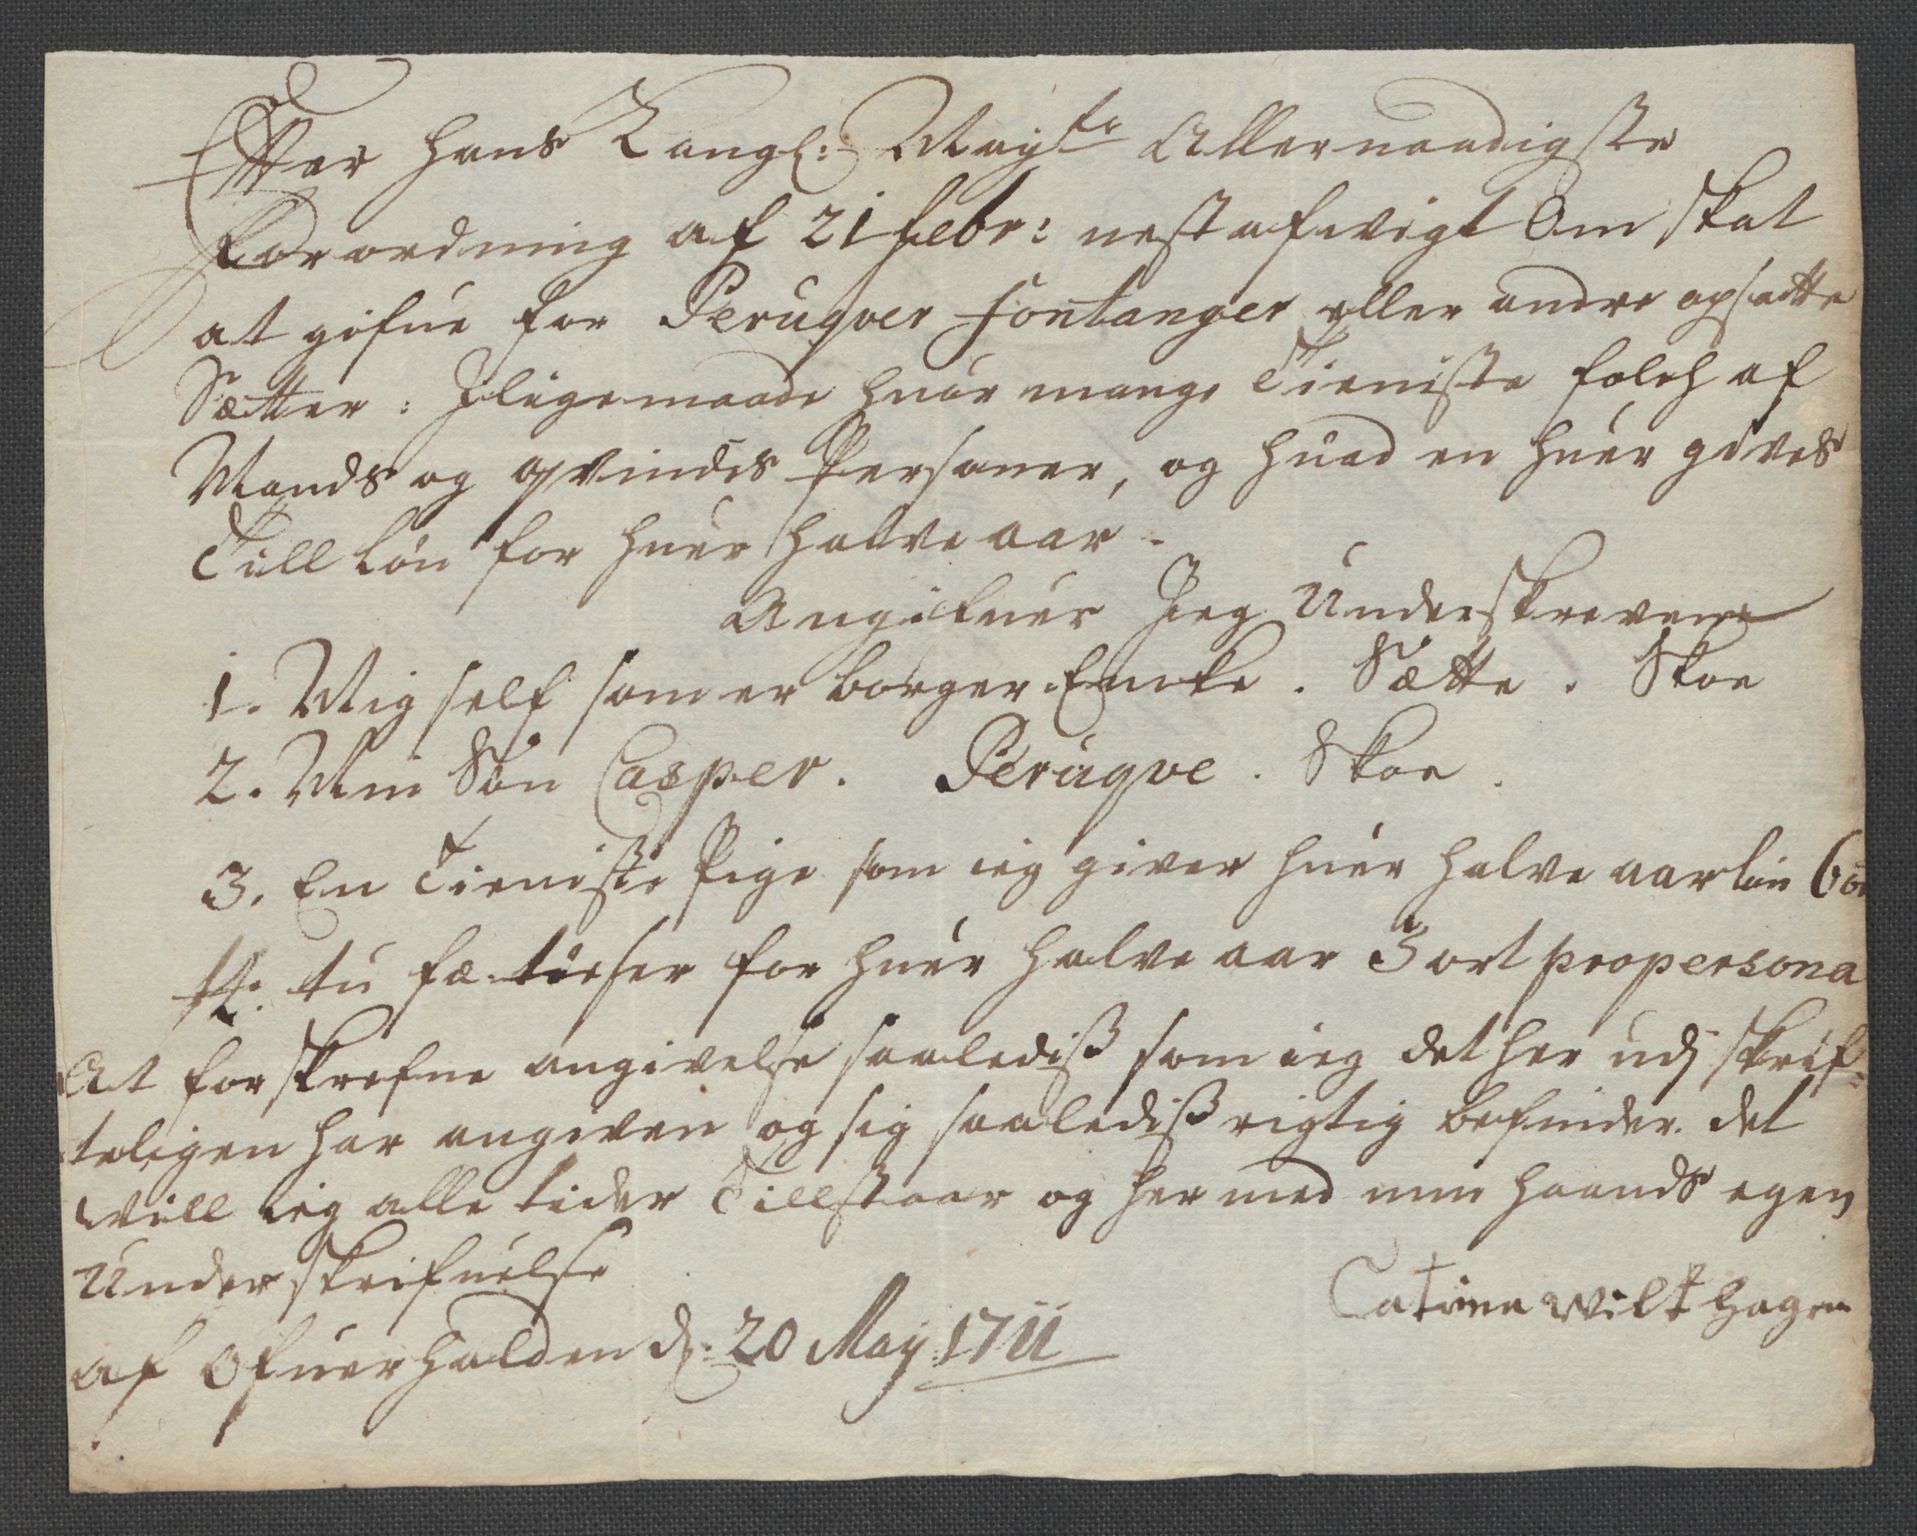 Efter hans Kongl: May:ts Allernaadigste
Forordning af 21 febr: nestafvigt Om skat
at gifue for Peruqver Fontanger eller andre opsatte
Sætter: Jligemaade huor mange Tieniste folch af
Mands og qvindes Personer, og huad en huer gives
Till Løn for huer halve aar.
Angifuer Jeg Underskrevene
1. Mig self som er borger Encke. Sætte. Skoe
2. Min Søn Casper. Peruqve. Skoe.
3. En Tieniste Pige som ieg giver huer halve aar løn 6 ort
tu fæ-tøeser for huer halve aar 3 ort propersona
At forskrefne angivelse saalediß som ieg det her udj skrif-
teligen har angiven og sig saalediß rigtig befinder. det
will ieg alle tider Tillstaar og her med min haands egen
Underskrifuelse
Catrina Wilt hagen
af Ofuerhalden d: 20 May: 1711